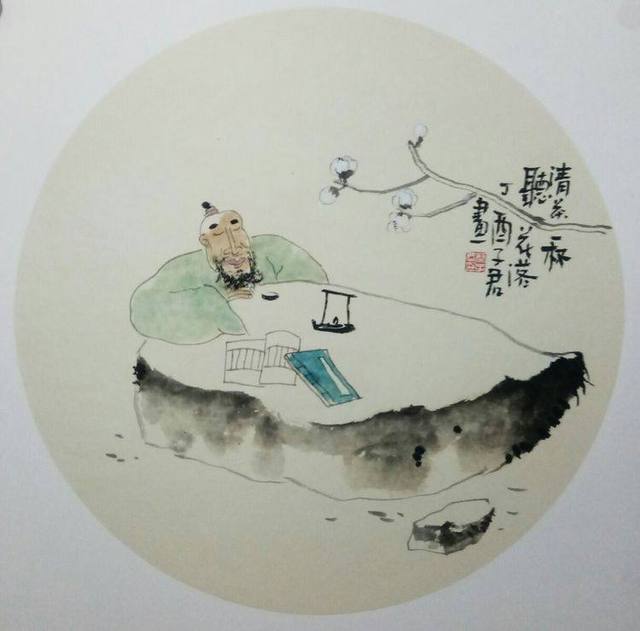 清茶一杯
聽花落
丁酉子君
畫